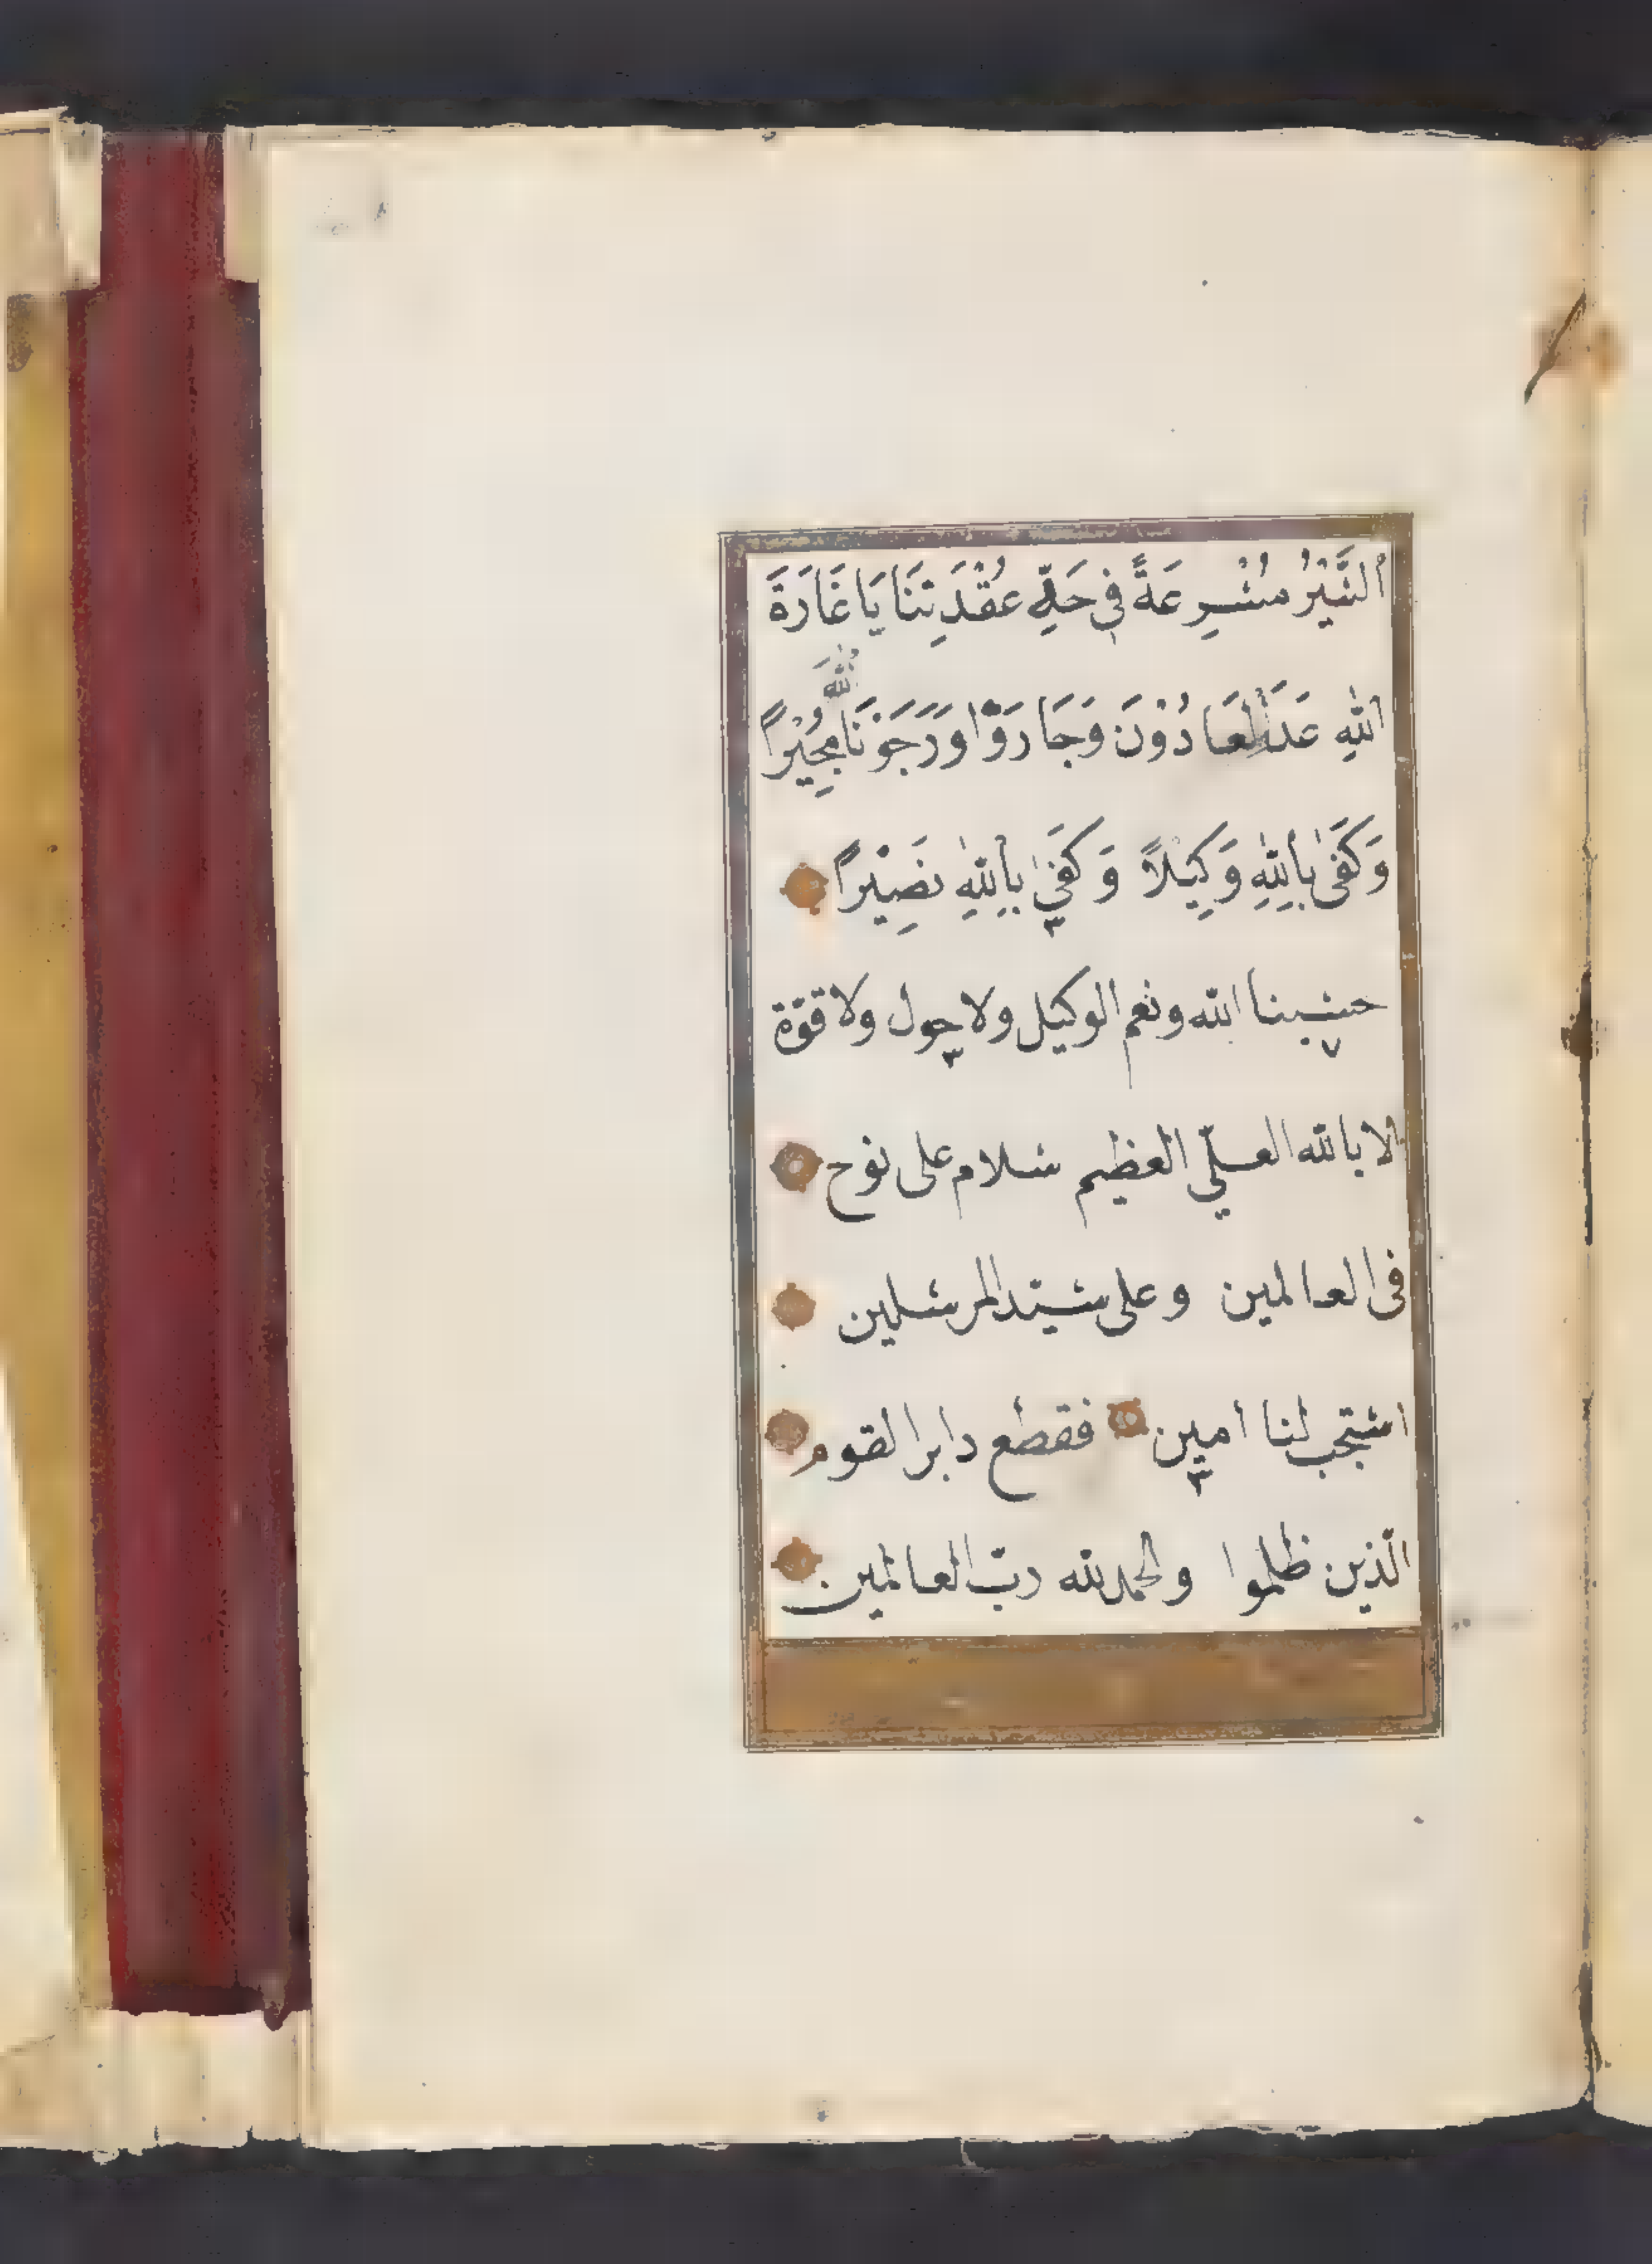 اَلسَّيْرَ مُسْرِعَةً فِي حَلِّ عُقْدَتِنَا يَا غَارَةَ
اللهِ عَدَا لْعَادُوْنَ وَجَارُوْا وَرَجَوْنَا اللهَ مُجِيْرًا
وَكَفَى بِاللهِ وَكِيْلاً وَكَفَى بِاللهِ نَصِيْرًا
٣
حسبنا الله ونعم الوكيل ولا حول ولا قوّة
٧ ٣
الا بالله العلي العظيم سلام على نوح
فى العالمين وعلى سيّد المرسلين
استجب لنا امين فقطع دابر القوم
٣
الّذين ظلموا والحمد لله ربّ العالمين